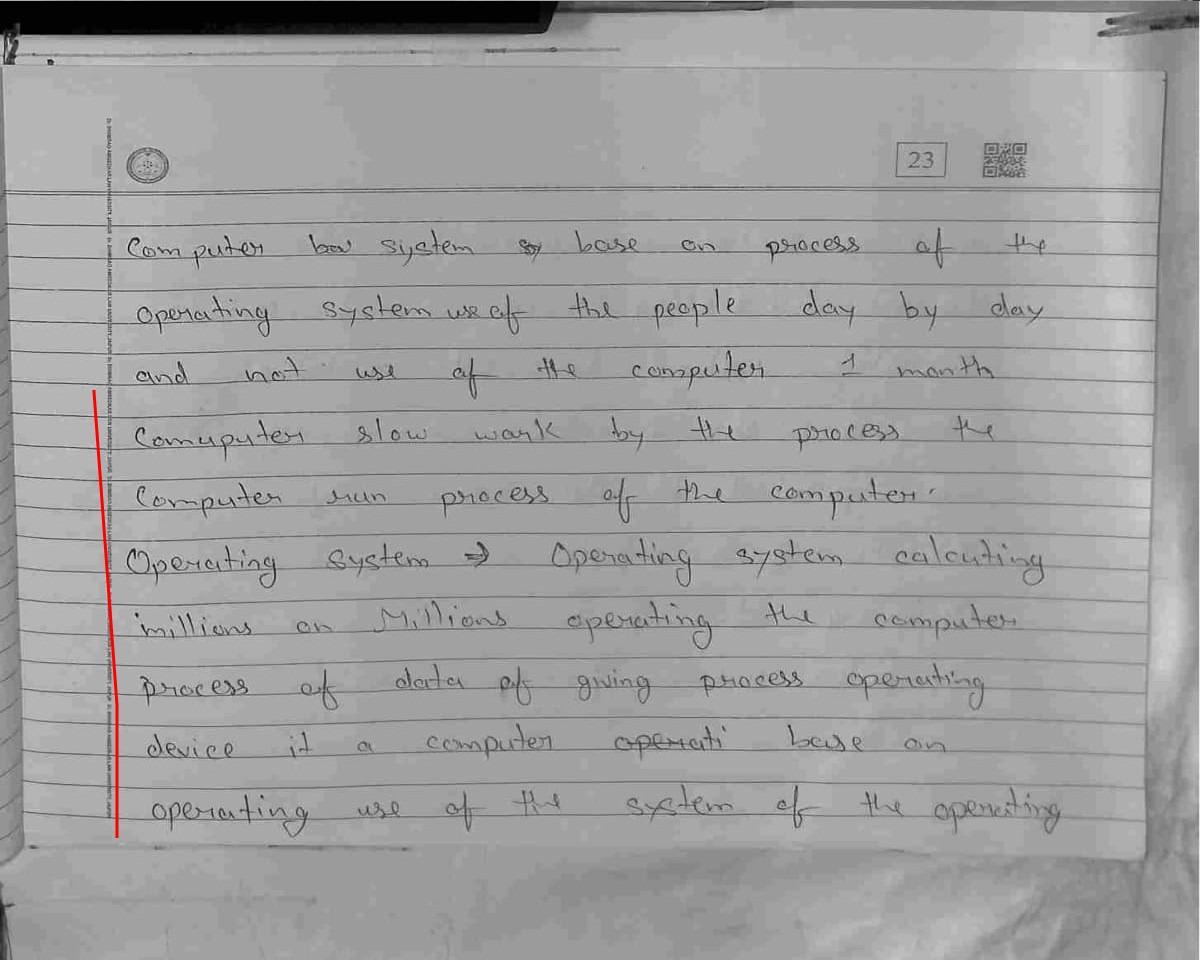 23
Computer system base on process of the
operating system use of the people day by day
and not use of the computer 1 month
Comuputer slow work by the process the
Computer run process of the computer.
Operating system ⇒ Operating system calcuting
millions on Millions operating the computer
process of data of giving process operating
device it a computer operati base on
operating use of the system of the operating